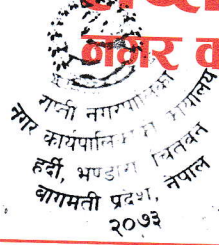 नगर क
राप्ती नगरपालिका
नगर कार्यपालिकाको कार्यालय
हर्दी, भण्डारा चितवन
बागमती प्रदेश, नेपाल
२०७३